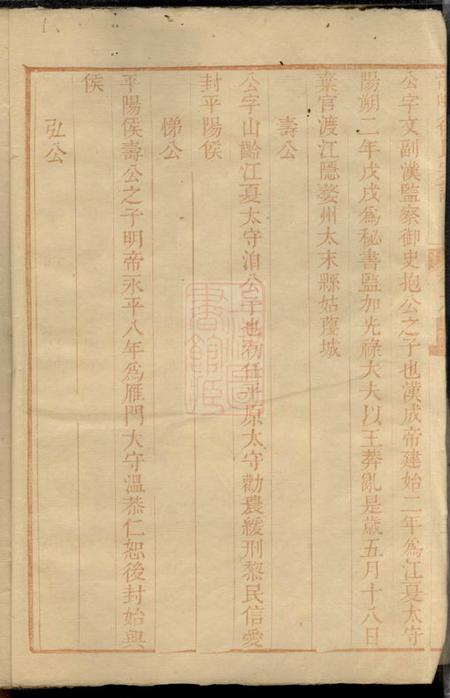 公字文副漢監察御史抱公之子也漢成帝建始二年爲江夏太守
陽朔二年戊戌爲秘書監加光祿大夫以王莽亂是歲五月十八日
棄官渡江隱婺州太末縣姑蔑城
壽公
公字山齡江夏太守洎公子也初任平原太守勸農緩刑黎民信愛
封平陽侯
悌公
平陽侯壽公之子明帝永平八年爲雁門太守溫恭仁恕後封始興
侯
弘公